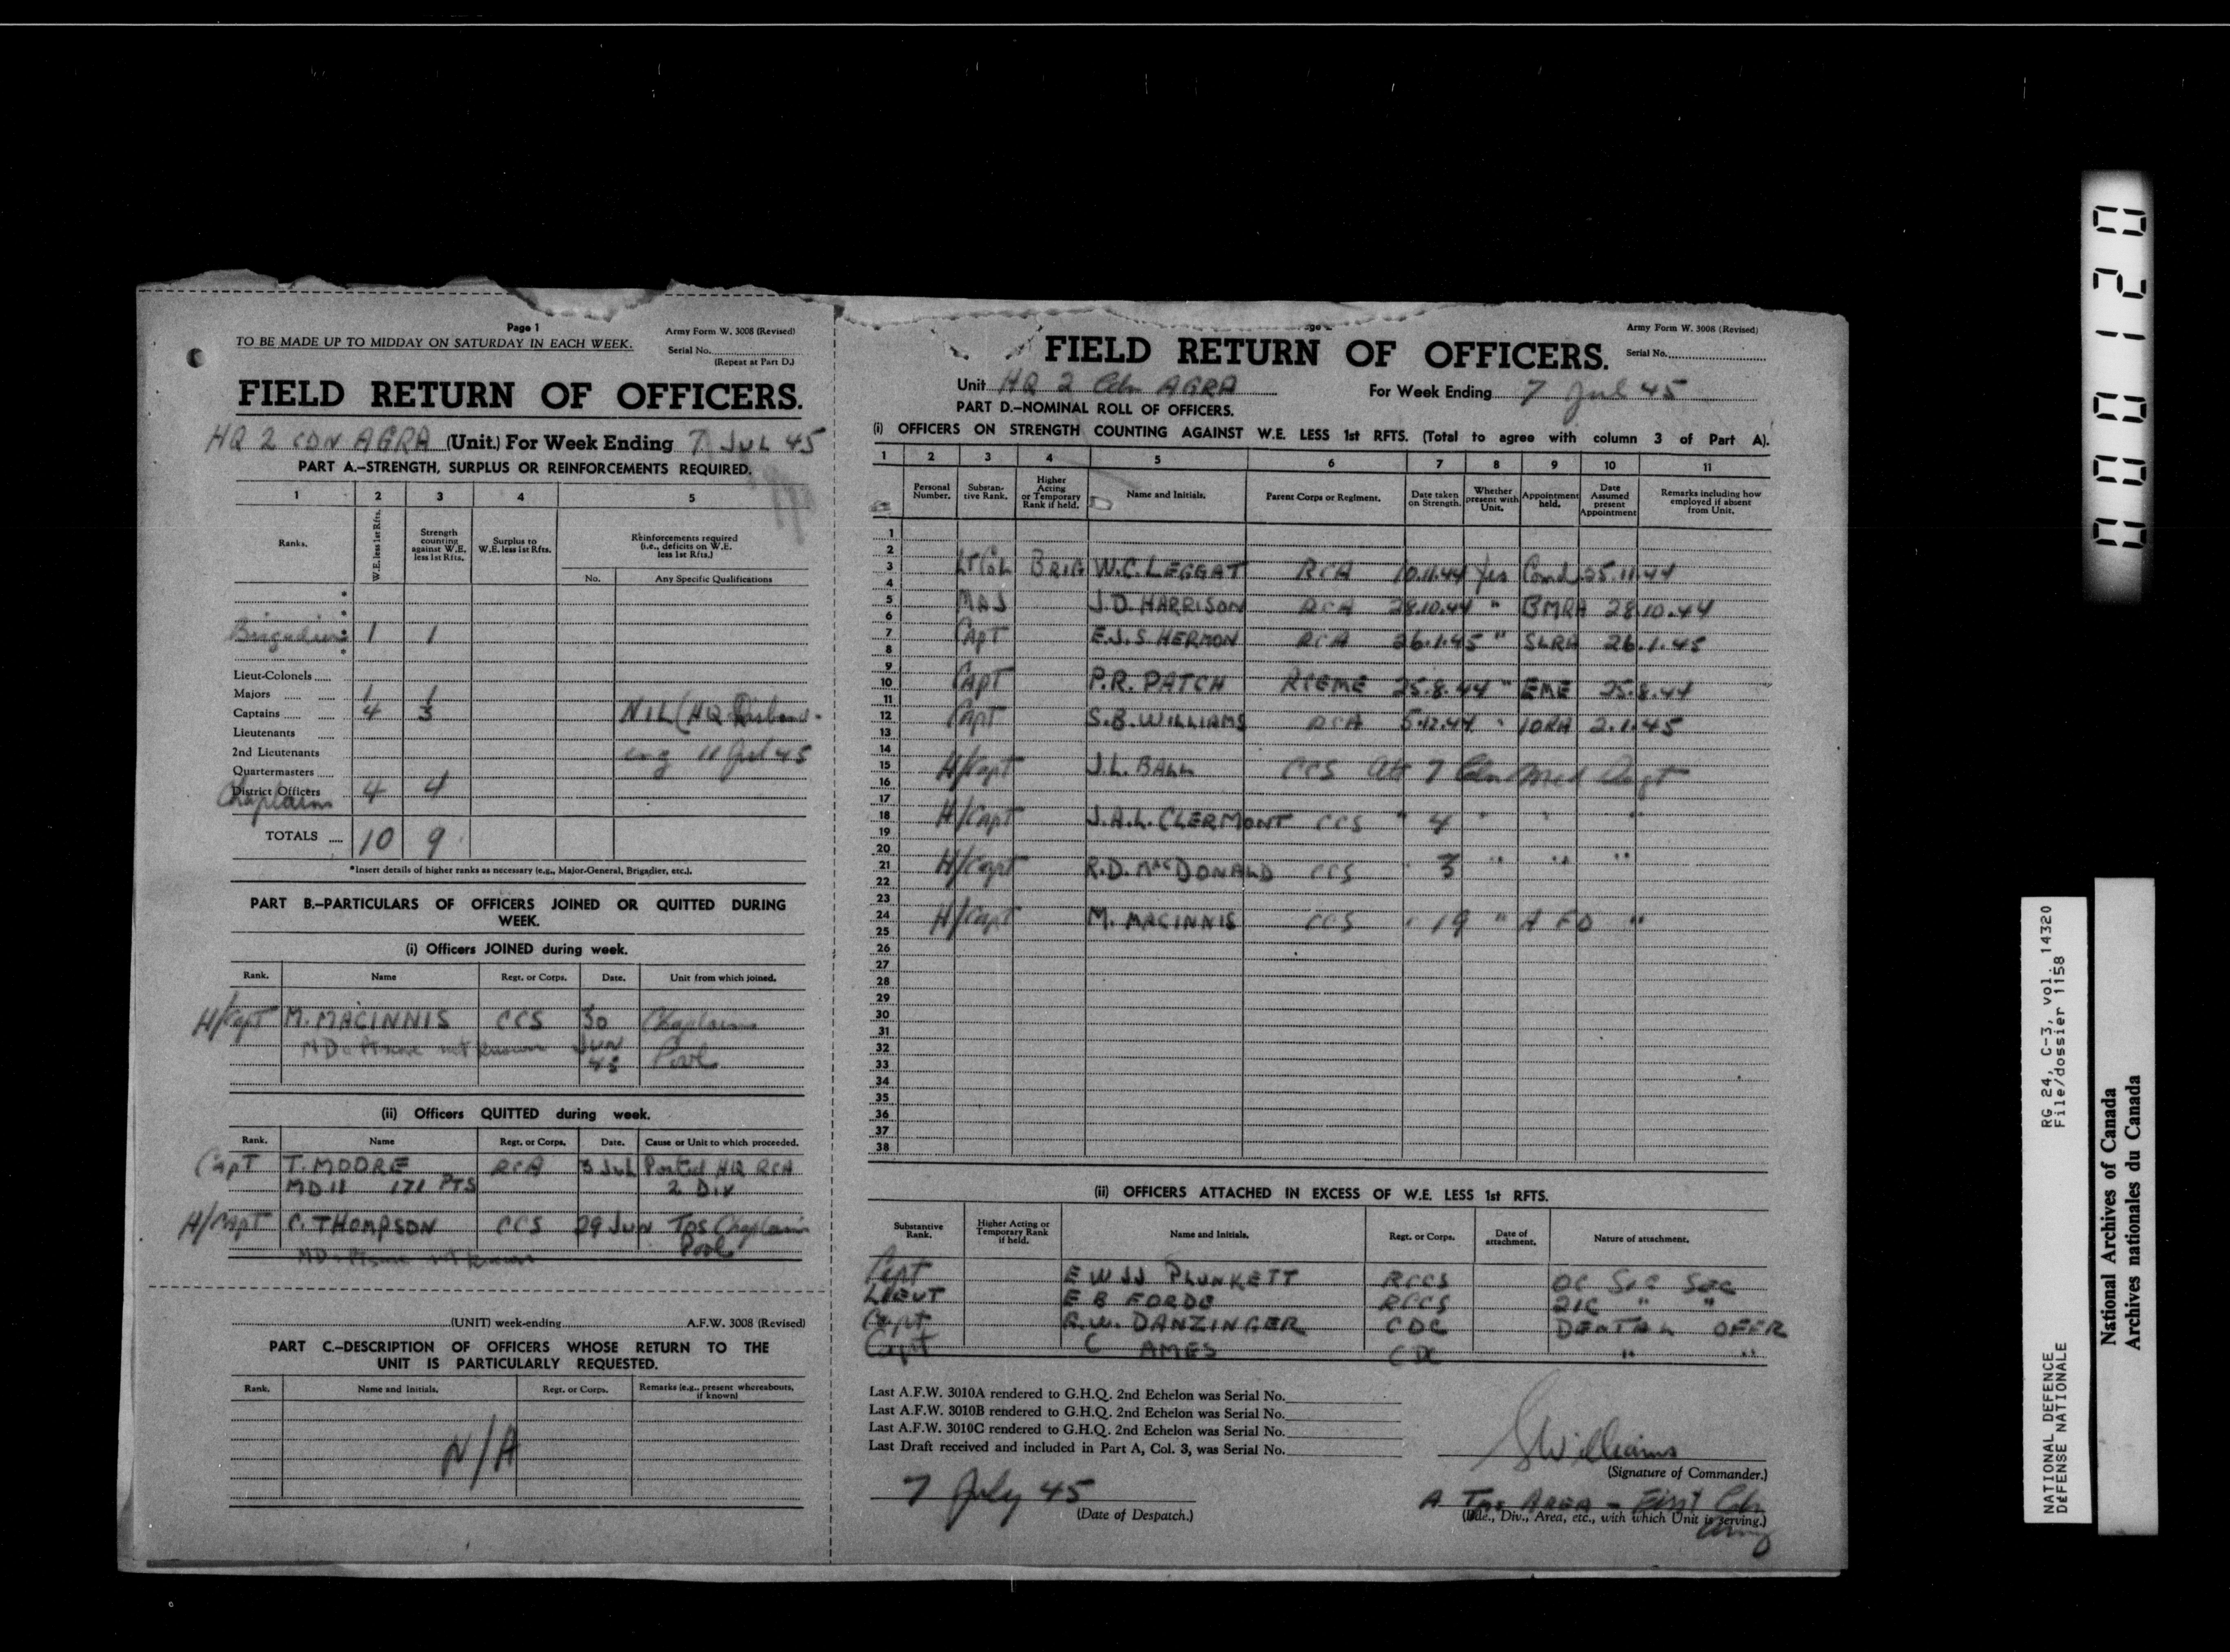 Page 1
Army Form W. 3008 (Revised)
TO BE MADE UP TO MIDDAY ON SATURDAY IN EACH WEEK.
Serial No.
(Repeat at Part D.)
FIELD RETURN OF OFFICERS.
HQ 2 CDN AGRA (Unit.) For Week Ending 7 JUL 45
PART A.—STRENGTH, SURPLUS OR REINFORCEMENTS REQUIRED.
1 2 3 4 5
Ranks. W.E. less 1st Rfts. Strength counting against W.E. less 1st Rfts. Surplus to W.E. less 1st Rfts. Reinforcements required (i.e., deficits on W.E. less 1st Rfts.)
No. Any Specific Qualifications
Brigadier 1 1
Lieut-Colonels
Majors 1 1
Captains 4 3 NIL (HQ Disband-
Lieutenants
2nd Lieutenants ing 11 Jul 45
Quartermasters
District Officers
Chaplains 4 4
TOTALS 10 9
*Insert details of higher ranks as necessary (e.g., Major-General, Brigadier, etc.).
PART B.—PARTICULARS OF OFFICERS JOINED OR QUITTED DURING
WEEK.
(i) Officers JOINED during week.
Rank. Name Regt. or Corps. Date. Unit from which joined.
H/Capt M. MACINNIS CCS 30 Chaplains
not known JUN Pool
45
(ii) Officers QUITTED during week.
Rank. Name Regt. or Corps. Date. Cause or Unit to which proceeded.
Capt T. MOORE RCA 3 Jul Posted HQ RCA
MD 11 171 PTS 2 Div
H/Capt C. THOMPSON CCS 29 Jun TOS Chaplain
Pool
not known
(UNIT) week-ending A.F.W. 3008 (Revised)
PART C.—DESCRIPTION OF OFFICERS WHOSE RETURN TO THE
UNIT IS PARTICULARLY REQUESTED.
Rank. Name and Initials. Regt. or Corps. Remarks (e.g., present whereabouts, if known)
N/A
Army Form W. 3008 (Revised)
FIELD RETURN OF OFFICERS.
Serial No.
Unit HQ 2 Cdn AGRA For Week Ending 7 Jul 45
PART D.—NOMINAL ROLL OF OFFICERS.
(i) OFFICERS ON STRENGTH COUNTING AGAINST W.E. LESS 1st RFTS. (Total to agree with column 3 of Part A).
1 2 3 4 5 6 7 8 9 10 11
Personal Number. Substantive Rank. Higher Acting or Temporary Rank if held. Name and Initials. Parent Corps or Regiment. Date taken on Strength. Whether present with Unit. Appointment held. Date Assumed present Appointment Remarks including how employed if absent from Unit.
1
2
3 LT COL BRIG W.C. LEGGAT RCA 10.11.44 Yes Comd 25.11.44
4
5 MAJ J.D. HARRISON RCA 28.10.44 " BMRA 28.10.44
6
7 Capt E.J.S. HERMON RCA 26.1.45 " SCRA 26.1.45
8
9
10 Capt P.R. PATCH RCEME 25.8.44 " EME 25.8.44
11
12 Capt S.B. WILLIAMS RCA 5.12.44 " IORA 2.1.45
13
14
15 H/Capt J.L. BALL CCS Att 7 Cdn Med Regt
16
17
18 H/Capt J.A.L. CLERMONT CCS " 4 " " "
19
20
21 H/Capt R.D. MacDONALD CCS " 3 " " "
22
23
24 H/Capt M. MACINNIS CCS " 19 " A FD "
25
26
27
28
29
30
31
32
33
34
35
36
37
38
(ii) OFFICERS ATTACHED IN EXCESS OF W.E. LESS 1st RFTS.
Substantive Rank. Higher Acting or Temporary Rank if held. Name and Initials. Regt. or Corps. Date of attachment. Nature of attachment.
Capt E W JJ PLUNKETT RCCS OC SIG SEC
LIEUT E B FORDE RCCS 2IC " "
Capt R.W. DANZINGER CDC DENTAL OFFR
Capt C AMES CDC " "
Last A.F.W. 3010A rendered to G.H.Q. 2nd Echelon was Serial No.
Last A.F.W. 3010B rendered to G.H.Q. 2nd Echelon was Serial No.
Last A.F.W. 3010C rendered to G.H.Q. 2nd Echelon was Serial No.
Last Draft received and included in Part A, Col. 3, was Serial No.
SWilliams
(Signature of Commander.)
7 July 45
(Date of Despatch.)
A Tps AREA - First Cdn Army
(Bde., Div., Area, etc., with which Unit is serving.)
0000120
RG 24, C-3, vol. 14320
File/dossier 1158
NATIONAL DEFENCE
DÉFENSE NATIONALE
National Archives of Canada
Archives nationales du Canada